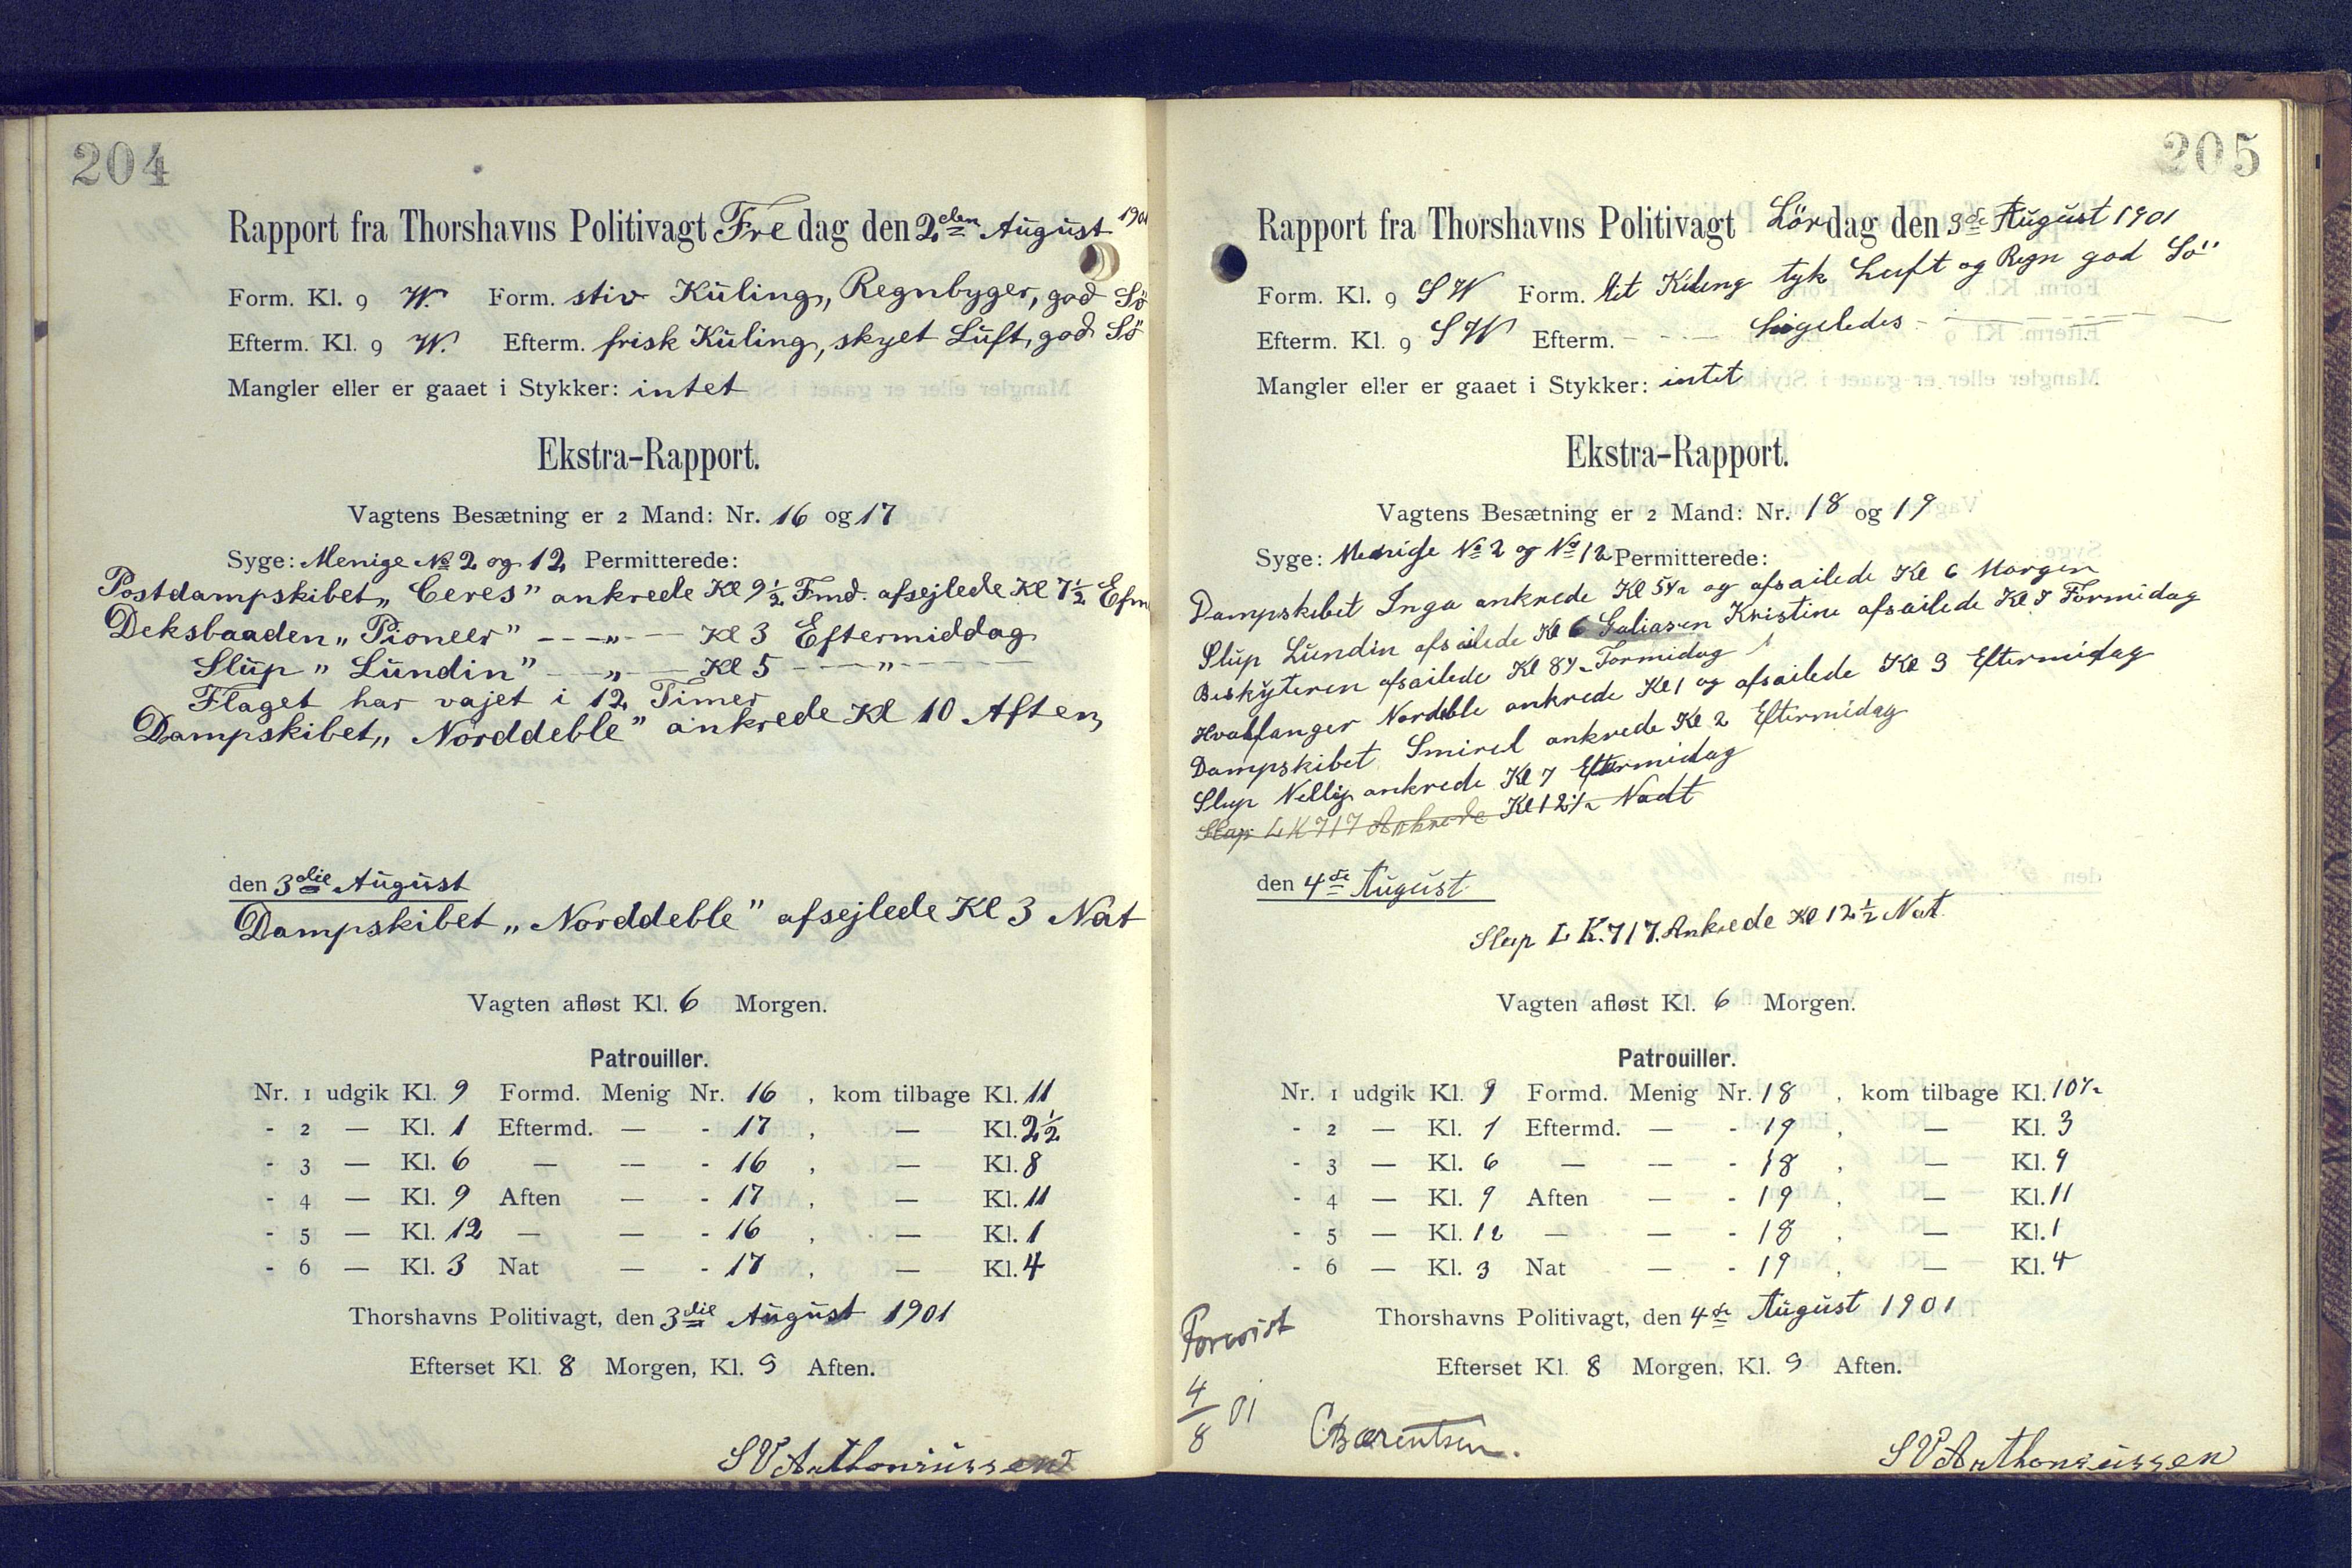 204
Rapport fra Thorshavns Politivagt Fredag den 2den August 1901
Form. Kl. 9 W. Form. stiv Kuling, Regnbyger, god Sö
Efterm. Kl. 9 W. Efterm. frisk Kuling, skyet Luft, god Sö
Mangler eller er gaaet i Stykker: intet
Ekstra-Rapport.
Vagtens Besætning er 2 Mand: Nr. 16 og 17
Syge: Menige No 2 og 12 Permitterede:
Postdampskibet „Ceres" ankrede Kl 9½ Fmd. afsejlede Kl 7½ Efm
Deksbaaden „Pioneer" — — „ — Kl 3 Eftermiddag
Slup „Lundin" — „ — Kl 5 — — „ — —
Flaget har vajet i 12 Timer
Dampskibet „Norddeble" ankrede Kl 10 Aften
den 3die August
Dampskibet „Norddeble" afsejlede Kl 3 Nat
Vagten afløst Kl. 6 Morgen.
Patrouiller.
Nr. 1 udgik Kl. 9 Formd. Menig Nr. 16, kom tilbage Kl. 11
- 2 — Kl. 1 Eftermd. — - 17, — Kl. 2½
- 3 — Kl. 6 — — - 16, — Kl. 8
- 4 — Kl. 9 Aften — - 17, — Kl. 11
- 5 — Kl. 12 — — - 16, — Kl. 1
- 6 — Kl. 3 Nat — - 17, — Kl. 4
Thorshavns Politivagt, den 3die August 1901
Efterset Kl. 8 Morgen, Kl. 9 Aften.
S V Anthoniussen
205
Rapport fra Thorshavns Politivagt Lördag den 3de August 1901
Form. Kl. 9 SW Form. Kuling tyk Luft og Regn god Sö
Efterm. Kl. 9 SW Efterm. — — — Ligeledes — — — — —
Mangler eller er gaaet i Stykker: intet
Ekstra-Rapport.
Vagtens Besætning er 2 Mand: Nr. 18 og 19
Syge: Menige No 2 og No 12 Permitterede:
Dampskibet Inga ankrede Kl 5½ og afsailede Kl 6 Morgen
Slup Lundin afsailede Kl 6 Galiasen Kristine afsailede Kl 7 Formidag
Beskyteren afsailede Kl 8½ Formidag
Hvalfanger Nordeble ankrede Kl 1 og afsailede Kl 3 Eftermidag
Dampskibet Smirel ankrede Kl 2 Eftermidag
Slup Nelly ankrede Kl 7 Eftermidag
Slup LK 717 Ankrede Kl 12½ Nadt
den 4de August
Slup LK. 717. Ankrede Kl 12½ Nat.
Vagten afløst Kl. 6 Morgen.
Patrouiller.
Nr. 1 udgik Kl. 9 Formd. Menig Nr. 18, kom tilbage Kl. 10½
- 2 — Kl. 1 Eftermd. — - 19, — Kl. 3
- 3 — Kl. 6 — — - 18, — Kl. 9
- 4 — Kl. 9 Aften — - 19, — Kl. 11
- 5 — Kl. 12 — — - 18, — Kl. 1
- 6 — Kl. 3 Nat — - 19, — Kl. 4
Thorshavns Politivagt, den 4de August 1901
Efterset Kl. 8 Morgen, Kl. 9 Aften.
Forevist
4/8 01
CBærentsen.
S V Anthoniussen